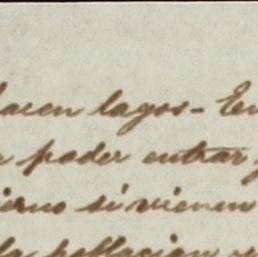 hacen lagos - En
poder entrar
si vienen
la poblacion